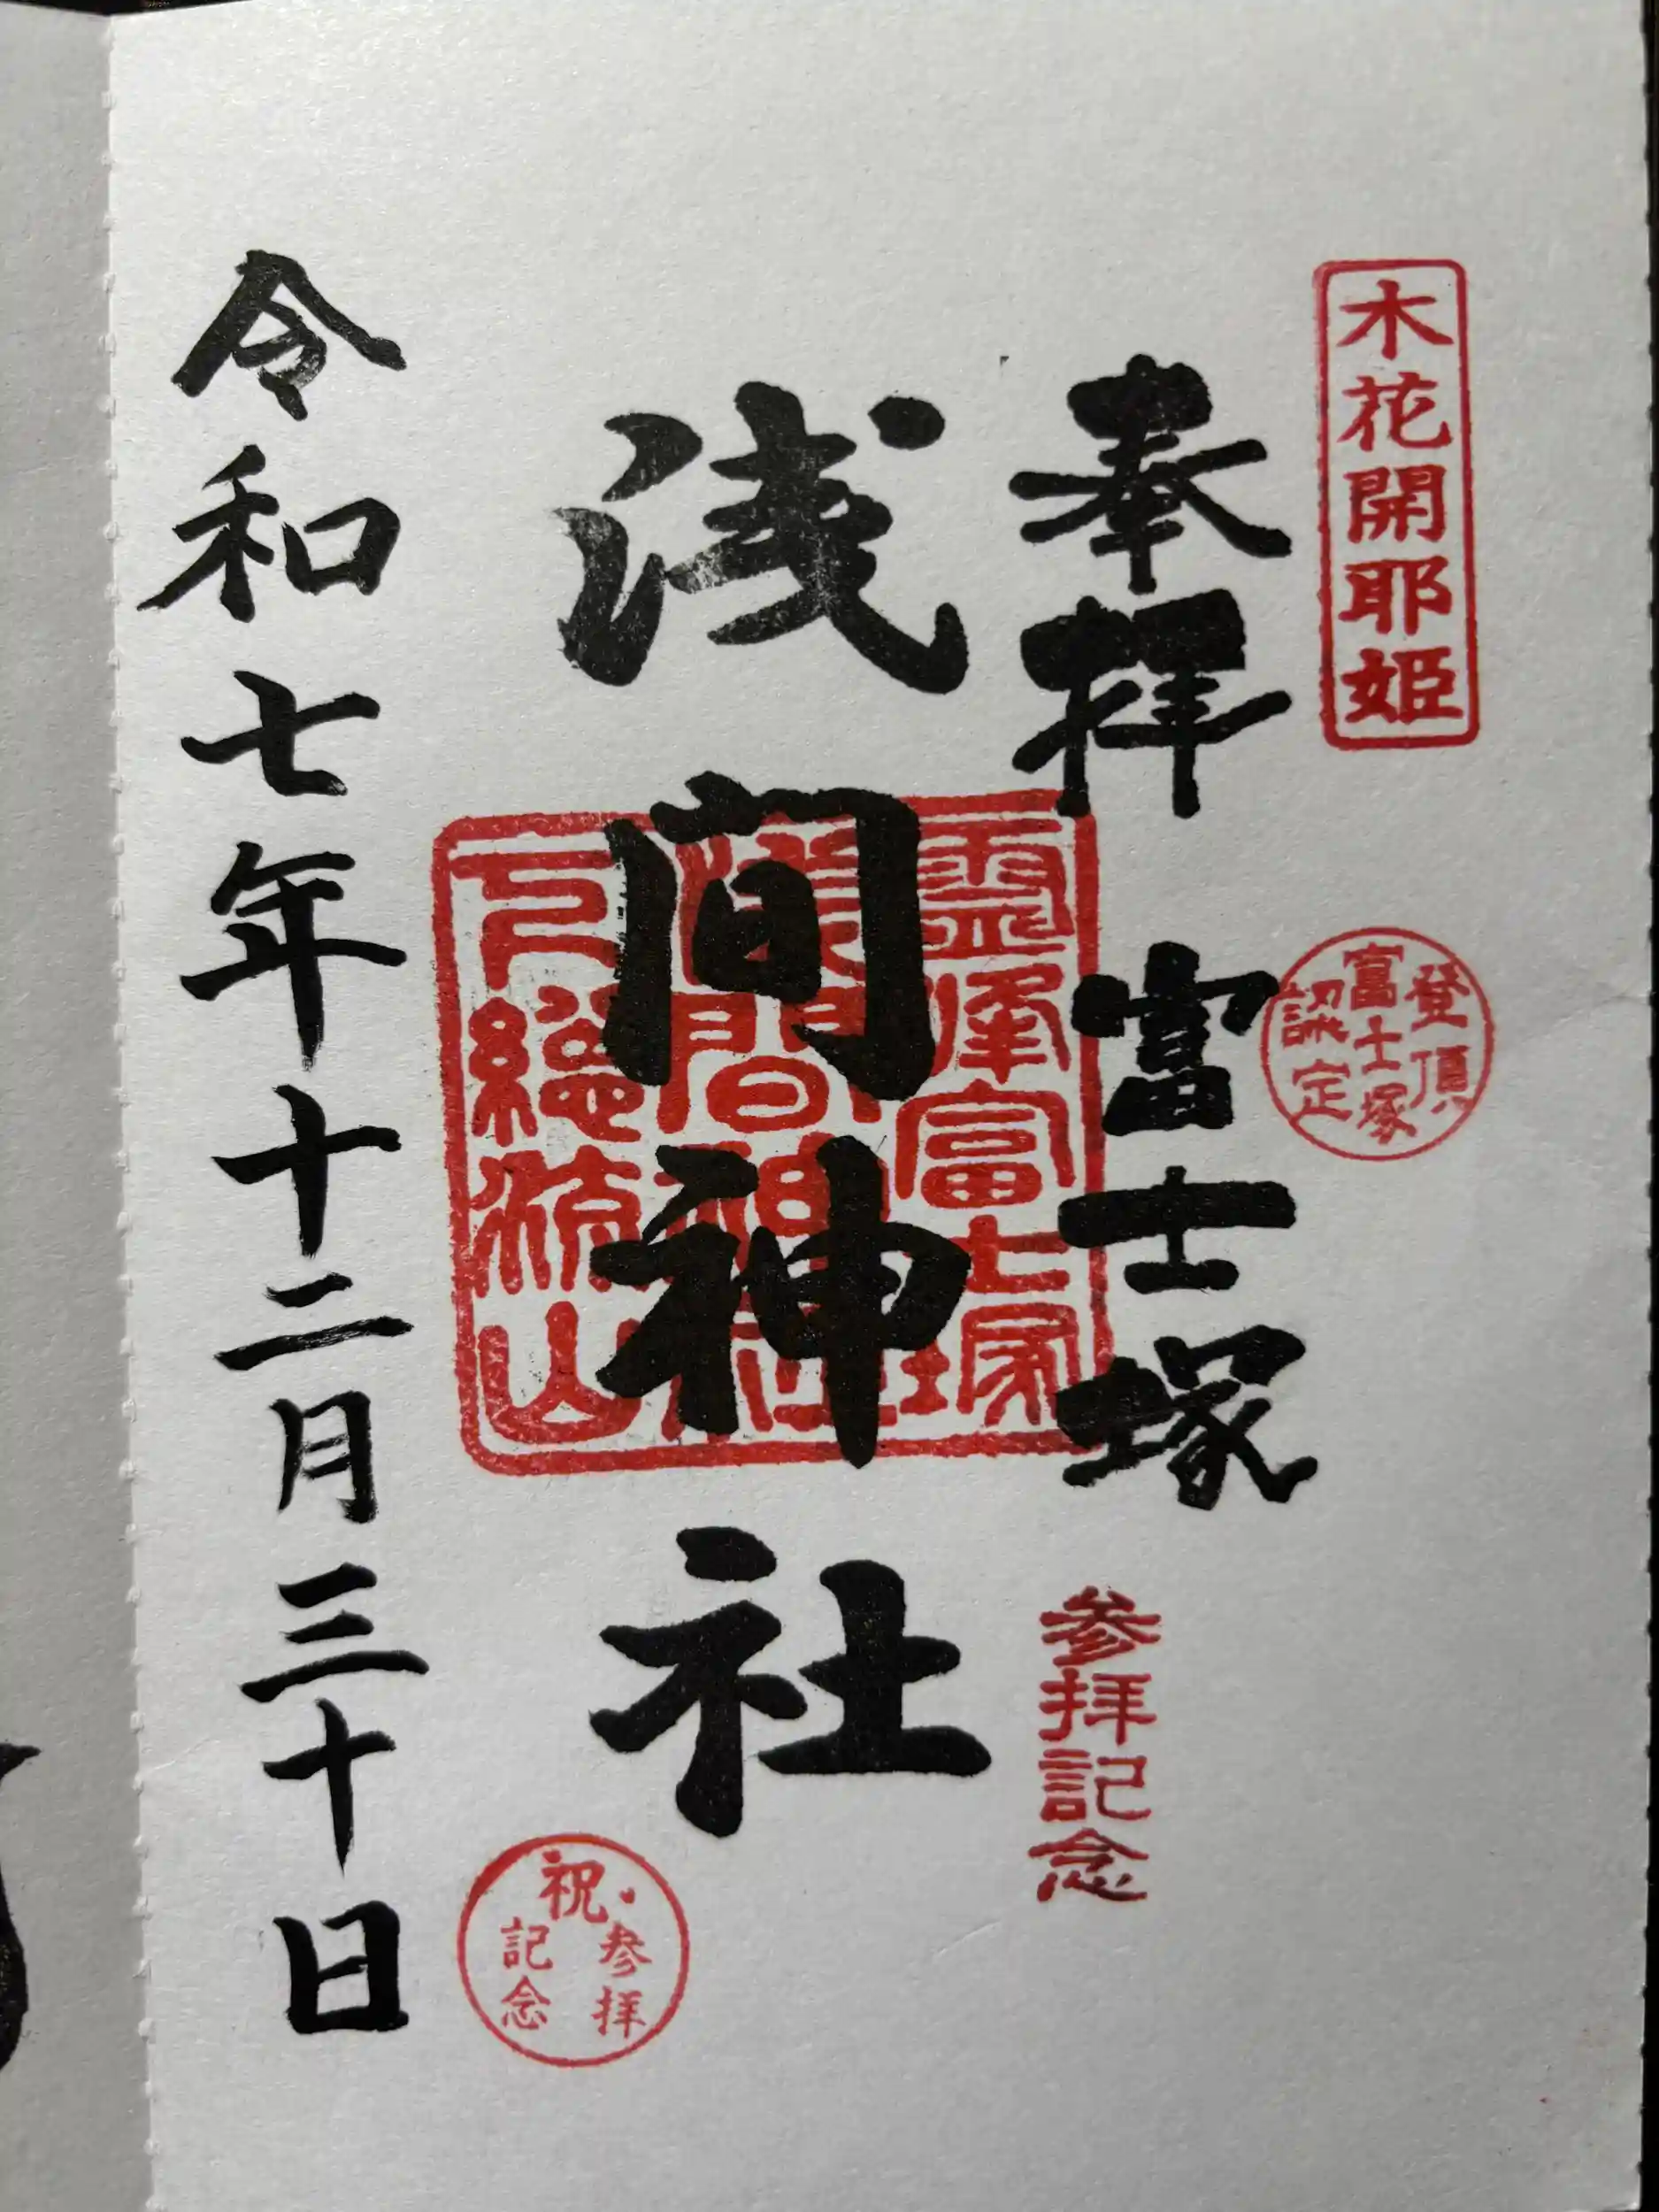 木花開耶姫
登頂
富士塚
認定
奉拝 富士塚
参拝記念
霊峰富士塚
浅間神社
浅間神社
祝・参拝
記念
令和七年十二月三十日